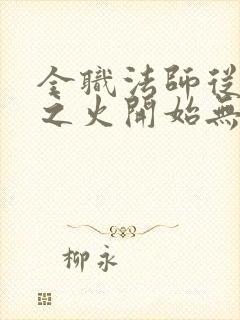 全職法師從
之火開始無
柳永